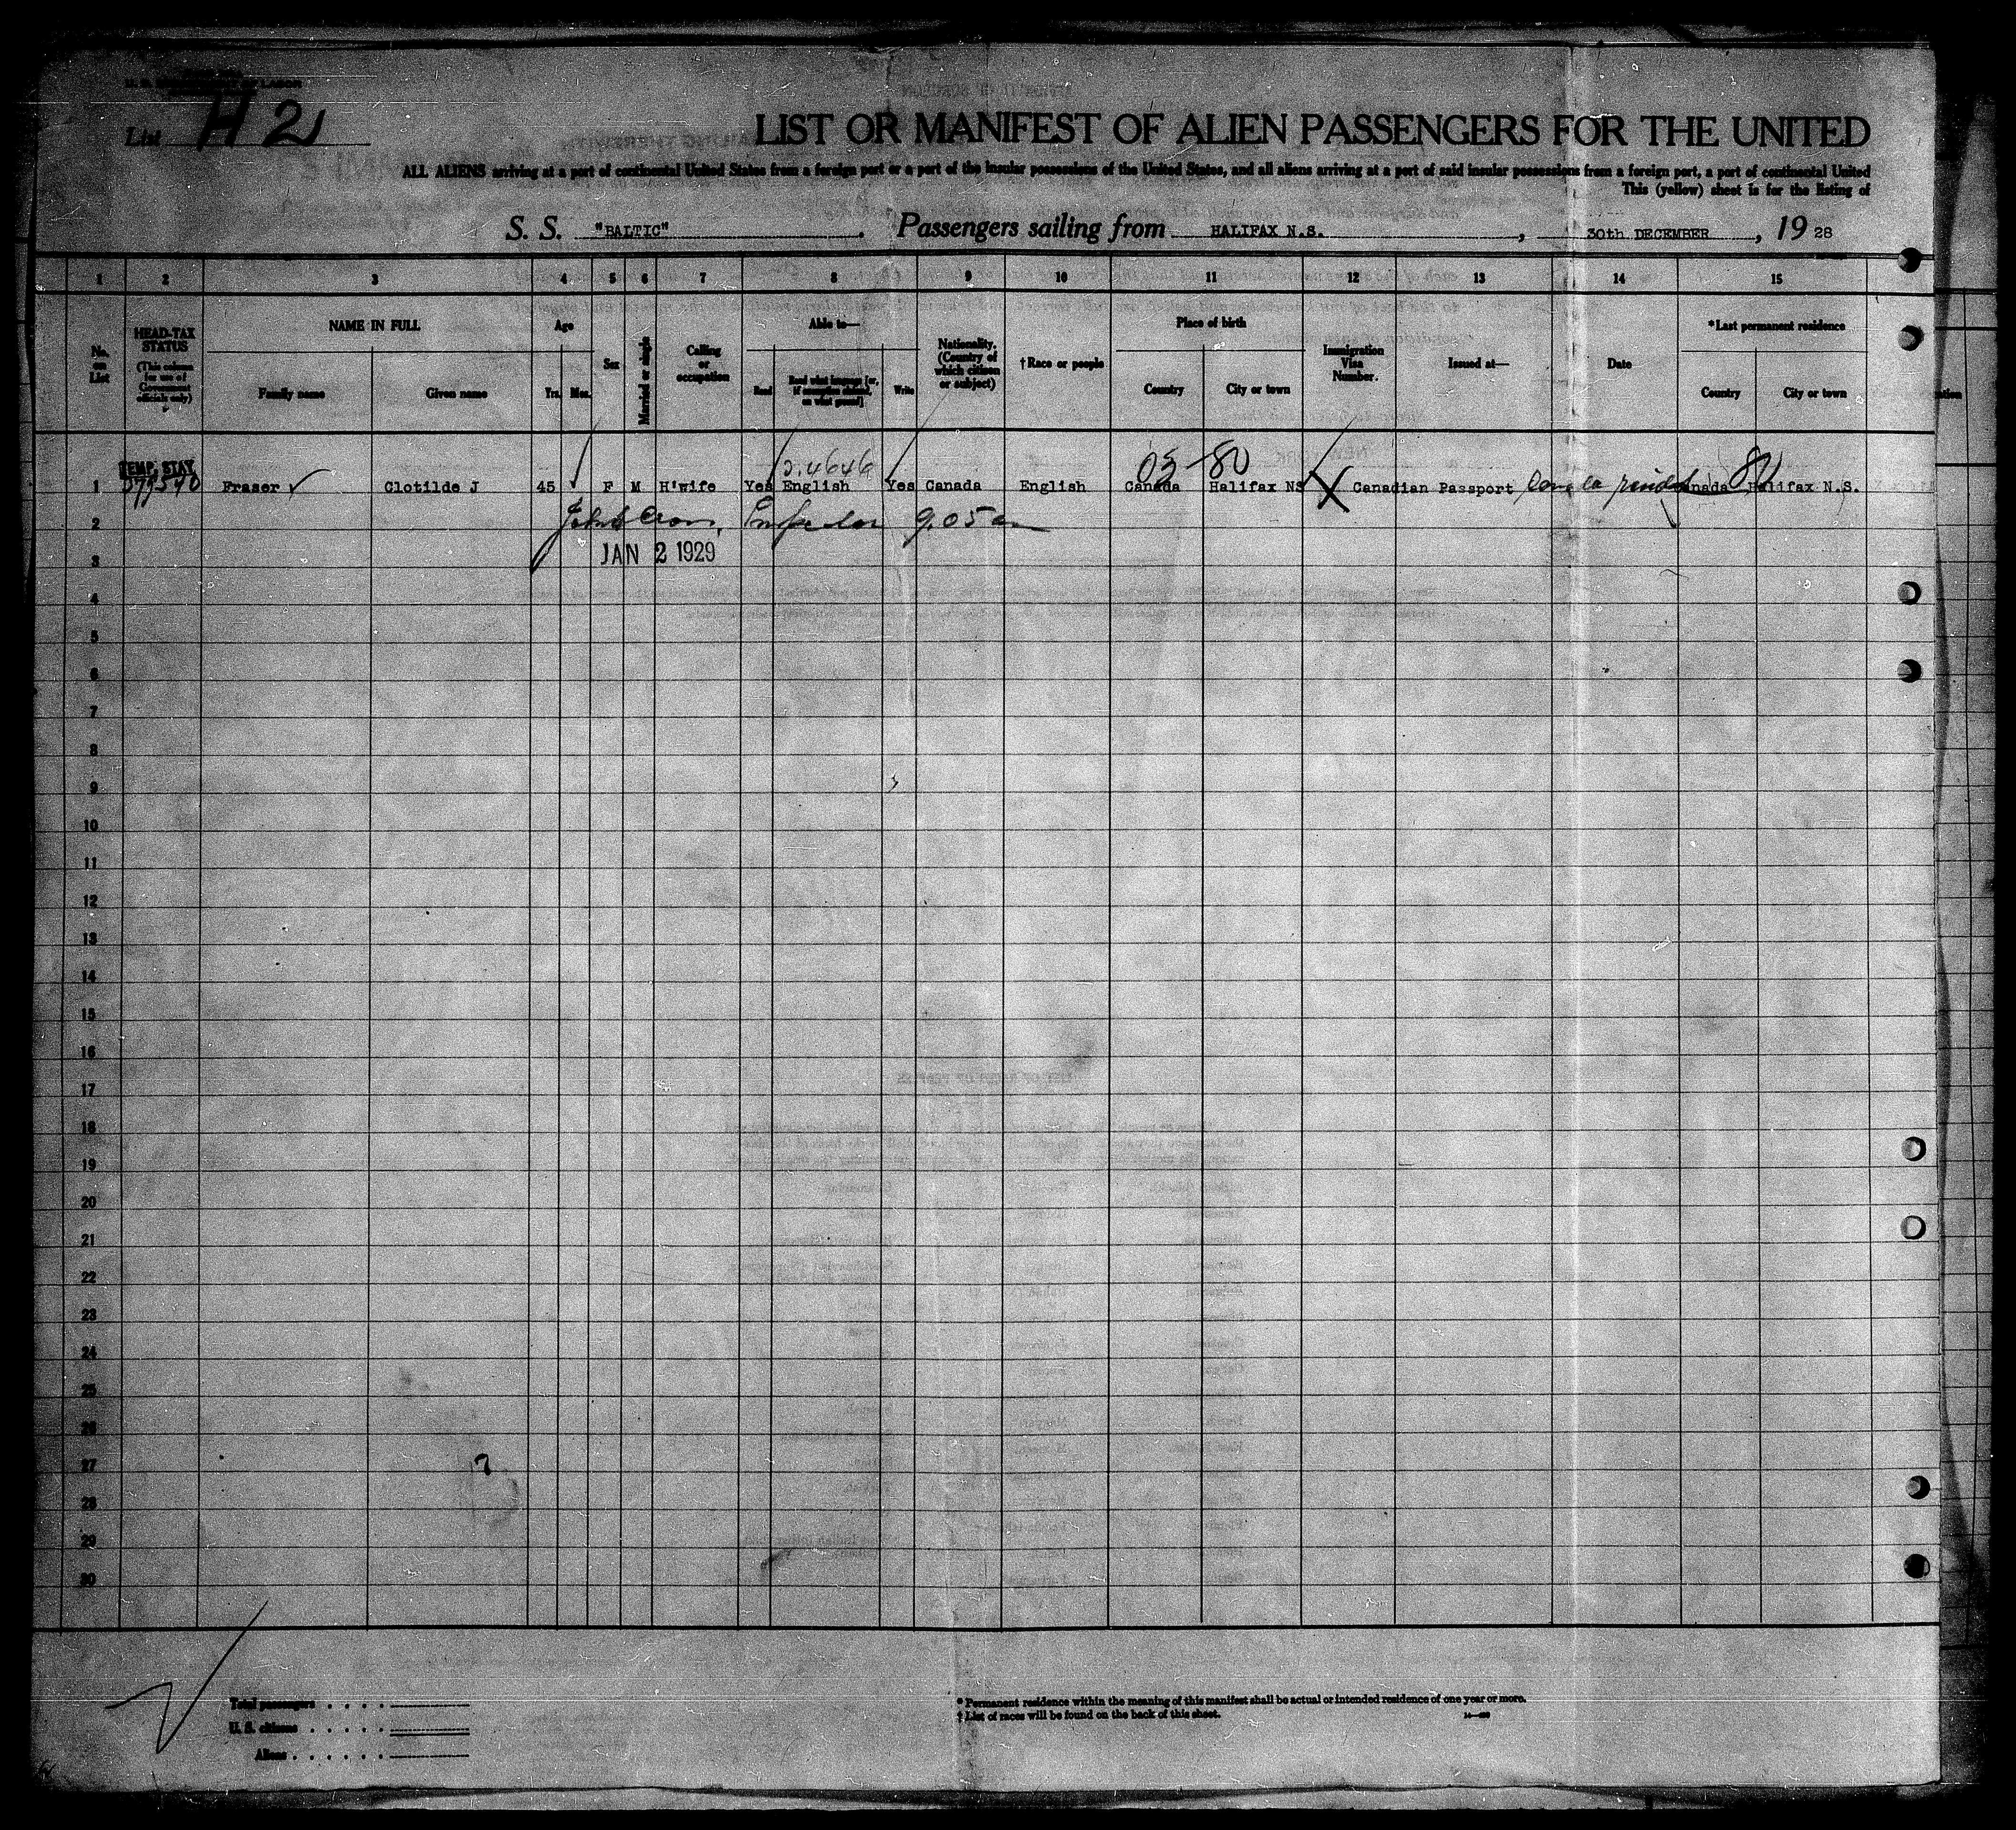 U. S. DEPARTMENT OF LABOR
List H 2
LIST OR MANIFEST OF ALIEN PASSENGERS FOR THE UNITED
ALL ALIENS arriving at a port of continental United States from a foreign port or a port of the insular possessions of the United States, and all aliens arriving at a port of said insular possessions from a foreign port, a port of continental United
This (yellow) sheet is for the listing of
S. S. "BALTIC" , Passengers sailing from HALIFAX N.S. , 30th DECEMBER , 19 28
1 2 3 4 5 6 7 8 9 10 11 12 13 14 15
No. on List
HEAD-TAX STATUS (This column for use of Government officials only)
NAME IN FULL
Family name Given name
Age
Yrs. Mos.
Sex
Married or single
Calling or occupation
Able to—
Read Read what language [or, if exemption claimed, on what ground] Write
Nationality. (Country of which citizen or subject)
†Race or people
Place of birth
Country City or town
Immigration Visa Number.
Issued at—
Date
*Last permanent residence
Country City or town
TEMP. STAY 2.4646 03-80
1 Fraser Clotilde J 45 F M H'wife Yes English Yes Canada English Canada Halifax NS X Canadian Passport Canada Halifax N.S.
2 Inspector 9.05 am
3 JAN 2 1929
4
5
6
7
8
9
10
11
12
13
14
15
16
17
18
19
20
21
22
23
24
25
26
27
28
29
30
Total passengers . . . .
U. S. citizens . . . . .
Aliens . . . . . .
* Permanent residence within the meaning of this manifest shall be actual or intended residence of one year or more.
† List of races will be found on the back of this sheet.